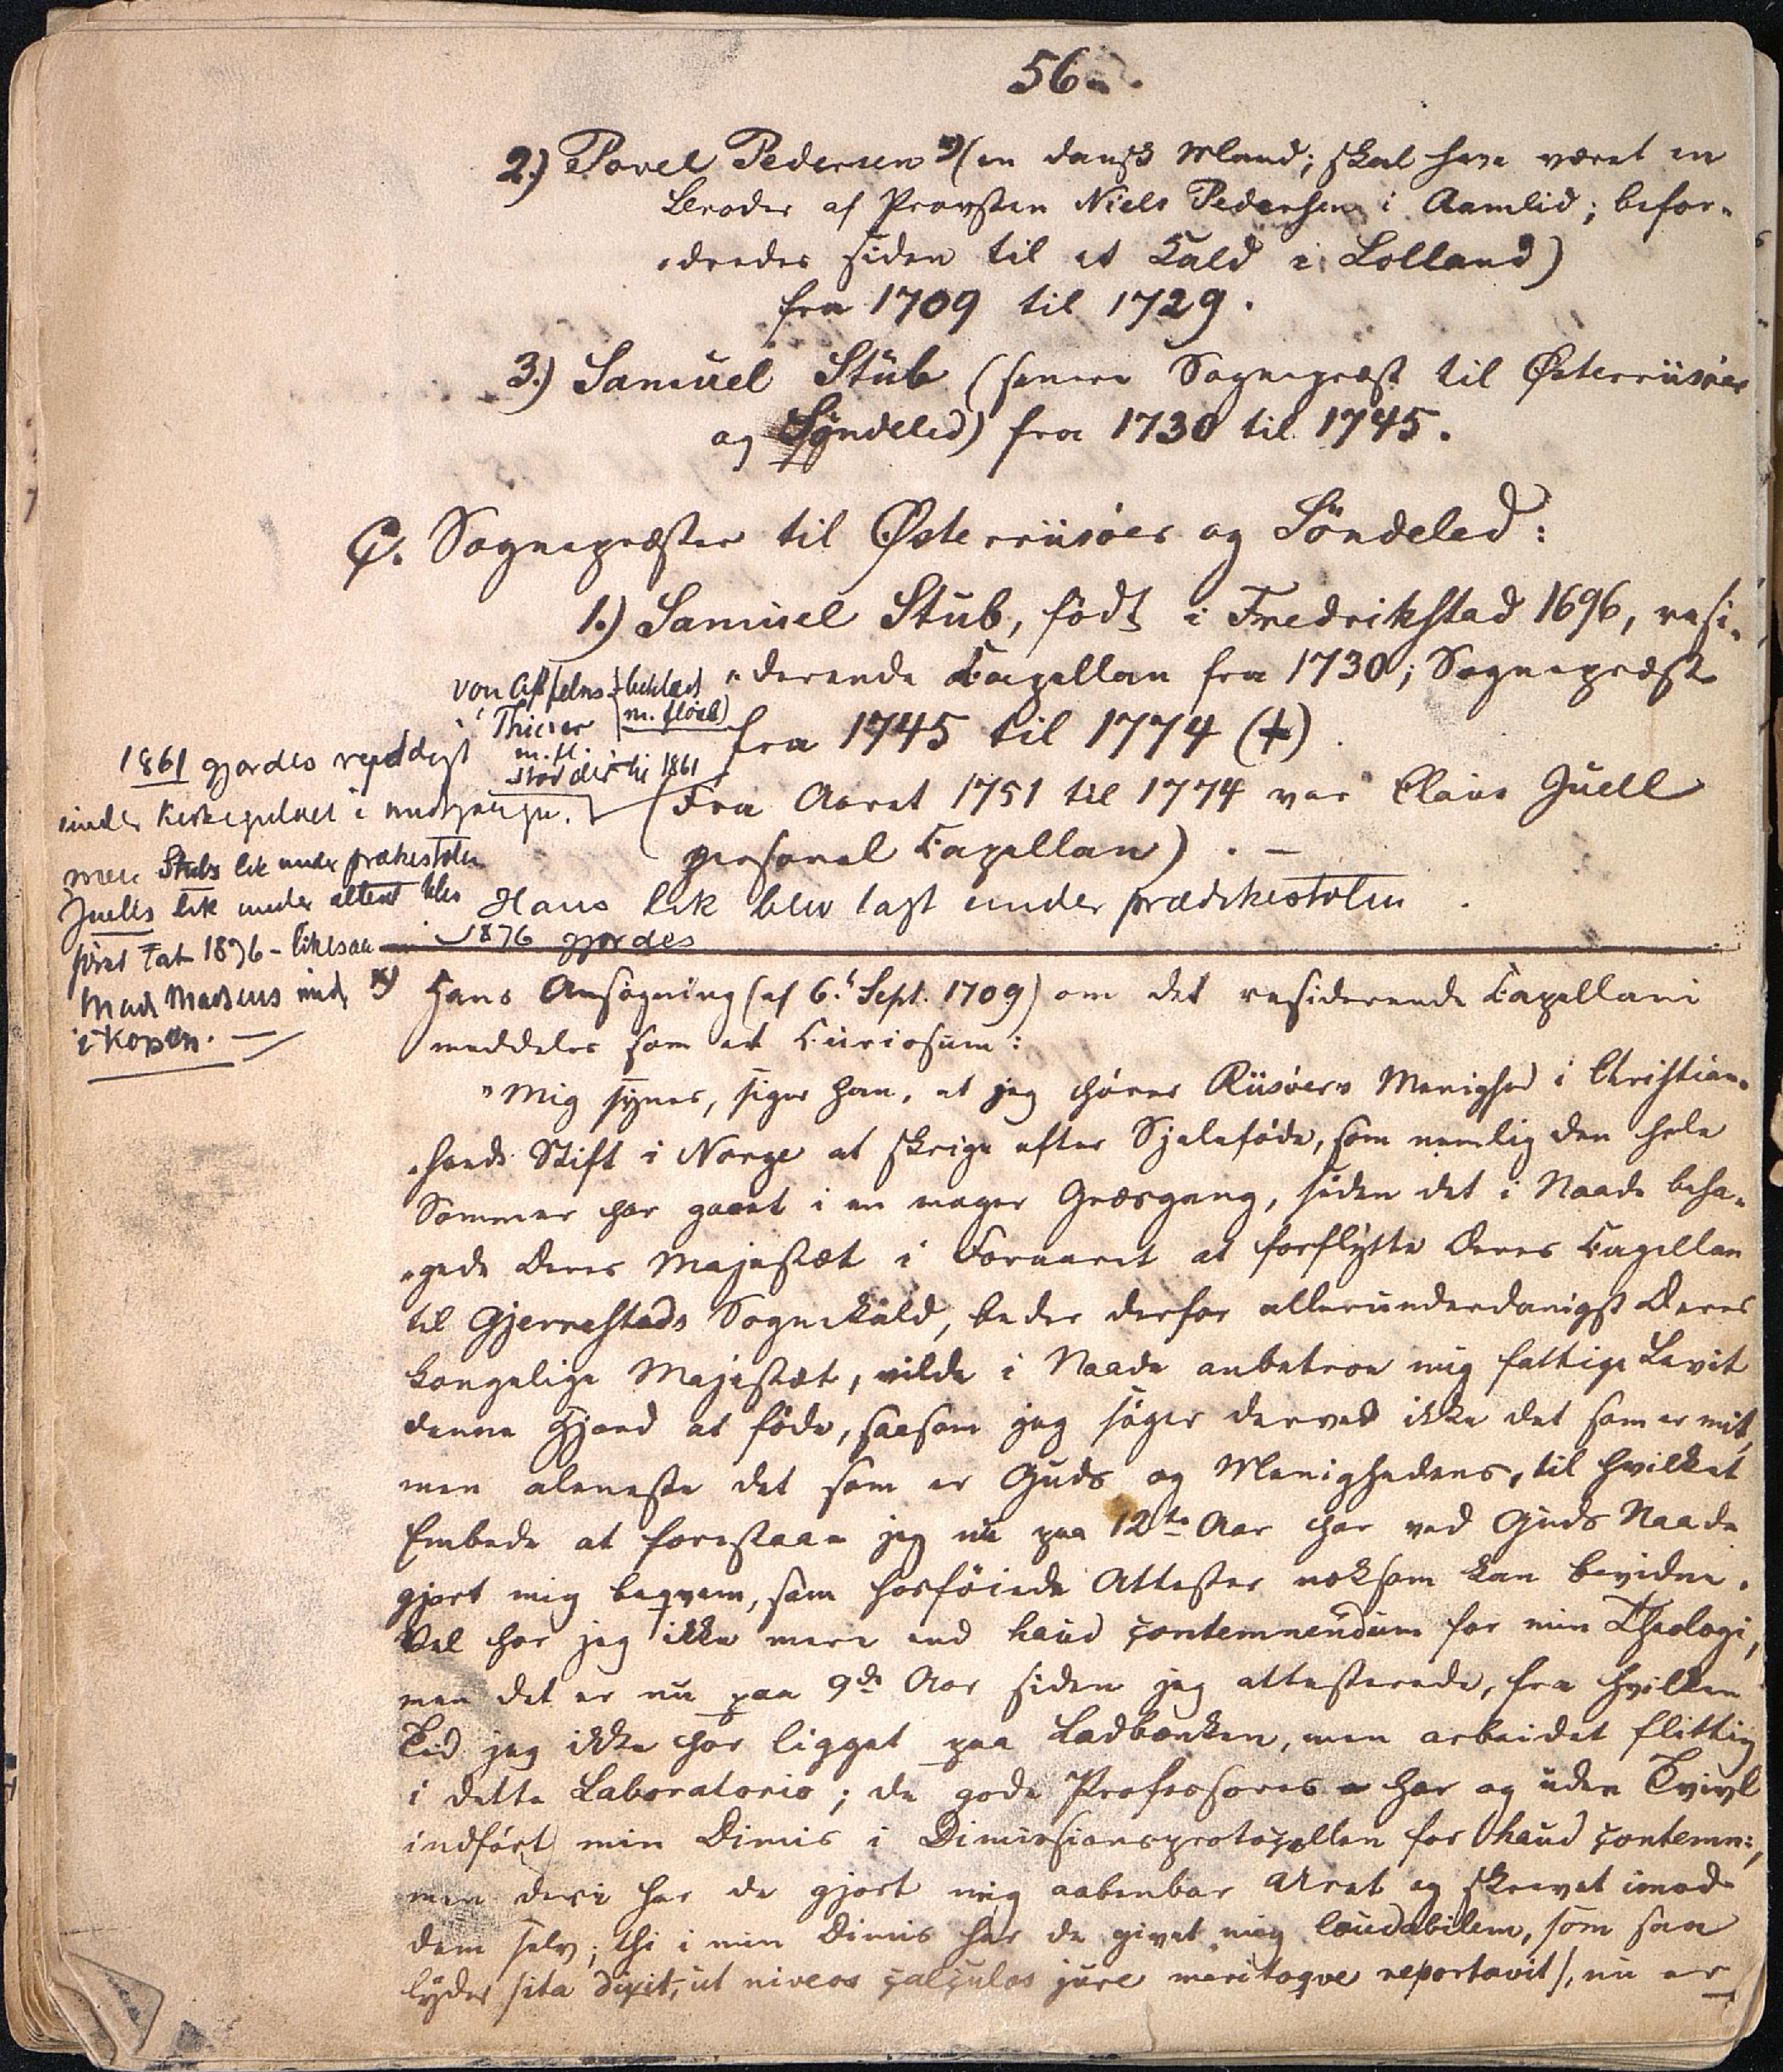 56.
2.) Povel Pedersen *) (en dansk Mand; skal have været en
Broder af Provsten Niels Pedersen i Aamlid; befor-
dredes siden til et Kald i Lolland)
fra 1709 til 1729.
3.) Samuel Stub (senere Sognepræst til Østerriisöer
og Söndeled) fra 1730 til 1745.
C. Sognepræster til Østerriisöer og Söndeled:
1.) Samuel Stub, födt i Fredrikstad 1696, resi-
derende Capellan fra 1730; Sognepræst
fra 1745 til 1774 (+)
(Fra Aaret 1751 til 1774 var Claus Juell
personel Capellan). —
Hans lik blev lagt under prædikestolen
1876 gjordes
von
Thieser
m. fl.
stod der til 1861
m. flöiel)
1861 gjordes
under kirkegulvet i
men Stubs lik under prækestolen
Juells lik under alteret blev
først tat 1876 - likesaa
Mads Madsens
i Kopen. —
*) Hans Ansögning (af 6.t Sept. 1709) om det residerende Capellani
meddeles som et Curiosum:
"Mig synes, siger han, at jeg hörer Riisöers Menighed i Christian-
sands Stift i Norge at skrige efter Sjeleföde, som nemlig den hele
Sommer har gaaet i en mager Græsgang, siden det i Naade beha-
gede Deres Majestæt i Foraaret at forflytte deres Capellan
til Gjerrestads Sognekald, beder derfor allerunderdanigst Deres
kongelige Majestæt, vilde i Naade anbetroe mig fattige Levit
denne Hjord at föde, saasom jeg söger derved ikke det som er mit,
men aleneste det som er Guds og Menighedens, til hvilket
Embede at forestaae jeg nu paa 12te Aar har ved Guds Naade
gjort mig beqvem, som hosföiede Attester noksom kan bevidne.
Vel har jeg ikke mere end haud contemnendum for min Theologi,
men det er nu paa 9de Aar siden jeg attesterede, fra hvilken
Tid jeg ikke har ligget paa Ladbænken, men arbeidet flittig
i dette Laboratorio; de gode Professores har og uden Tvivl
indfört min Dimis i Dimissionsprotocollen for haud contemn:,
men deri har de gjort mig aabenbar Uret og skrevet imod
dem selv; thi i min Dimis har de givet mig laudabilem, som saa
lyder /ita dixit, ut niveos calculos jure meritoqve reportavit/, nu er